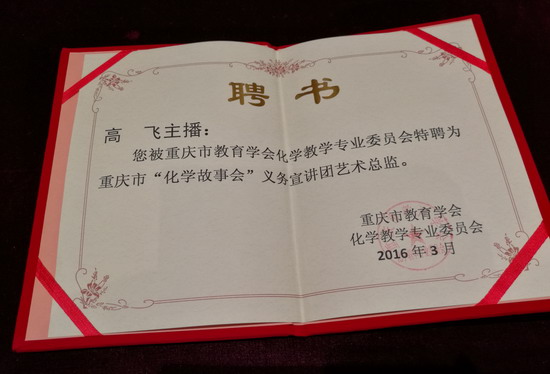 聘书
高 飞主播：
您被重庆市教育学会化学教学专业委员会特聘为
重庆市“化学故事会”义务宣讲团艺术总监。
重庆市教育学会
化学教学专业委员会
2016年3月